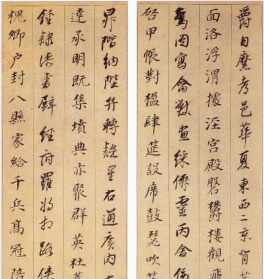 爵自縻都邑華夏東西二京背芒
面洛浮渭據涇宮殿盤鬱樓觀飛
驚圖寫禽獸畫綵僊靈丙舍傍
啓甲帳對楹肆筵設席鼓瑟吹
昇階納陛弁轉疑星右通廣內左
達承明既集墳典亦聚群英杜稾
鍾隸漆書壁經府羅將相路俠
槐卿戶封八縣家給千兵高冠陪